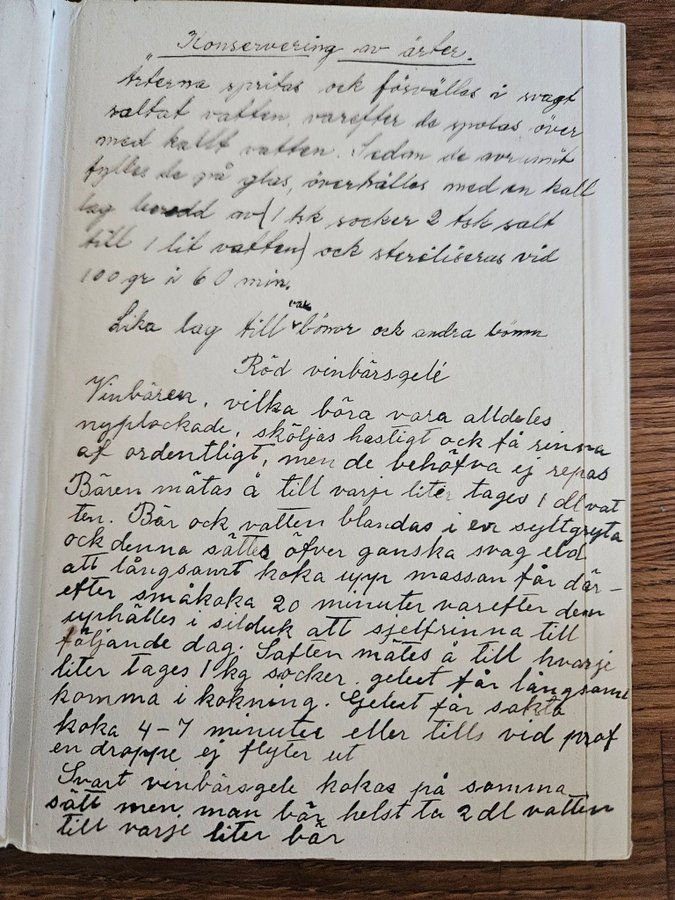 Konservering av ärter.
Ärterna spritas och förvälles i svagt
saltat vatten, varefter de spolas över
med kallt vatten. Sedan de avrunnit
fylles de på glas, överhälles med en kall
lag beredd av (1 tsk socker 2 tsk salt
till 1 lit vatten) och steriliseras vid
100 gr i 60 min.
Lika lag till vax bönor och andra bönor
Röd vinbärsgelé
Vinbären, vilka böra vara alldeles
nyplockade, sköljas hastigt och få rinna
af ordentligt, men de behöfva ej repas
Bären mätas å till varje liter tages 1 dl vat
ten. Bär och vatten blandas i en syltgryta
och denna sättes öfver ganska svag eld
att långsamt koka upp massan får där-
efter småkoka 20 minuter varefter den
uphälles i silduk att sjelfrinna till
följande dag. Saften mätes å till hvarje
liter tages 1 kg socker. geleet får långsamt
komma i kokning. Geleet får sakta
koka 4-7 minuter eller tills vid prof
en droppe ej flyter ut
Svart vinbärsgele kokas på samma
sätt men man bör helst ta 2 dl vatten
till varje liter bär